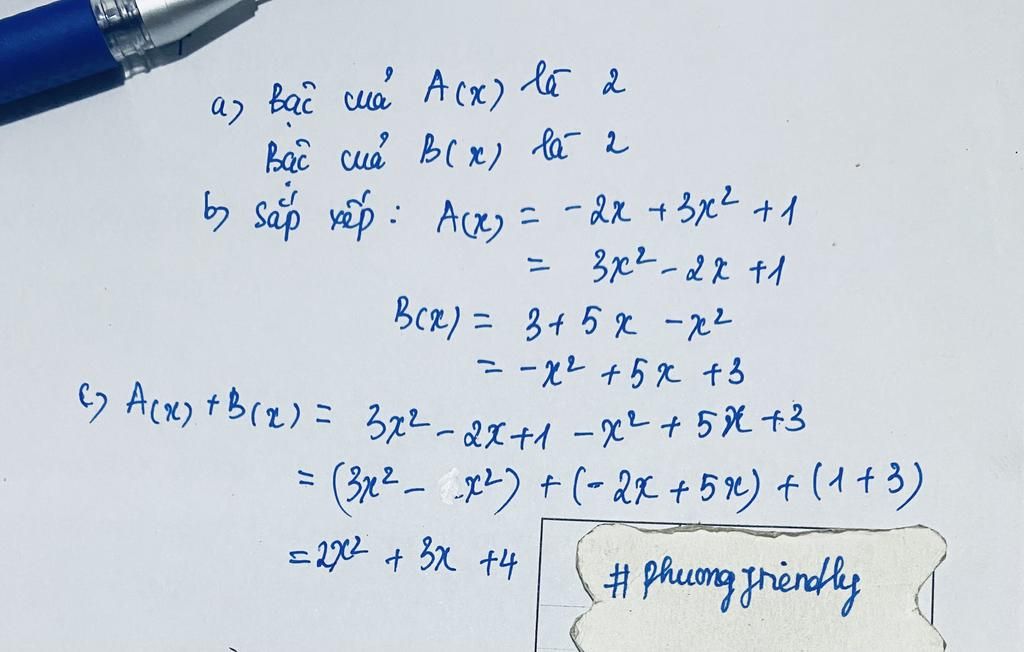 a) Bậc của A(x) là 2
Bậc của B(x) là 2
b) sắp xếp : A(x) = -2x + 3x² + 1
= 3x² - 2x + 1
B(x) = 3 + 5x - x²
= -x² + 5x + 3
c) A(x) + B(x) = 3x² - 2x + 1 - x² + 5x + 3
= (3x² - x²) + (-2x + 5x) + (1 + 3)
= 2x² + 3x + 4
# phuong friendly